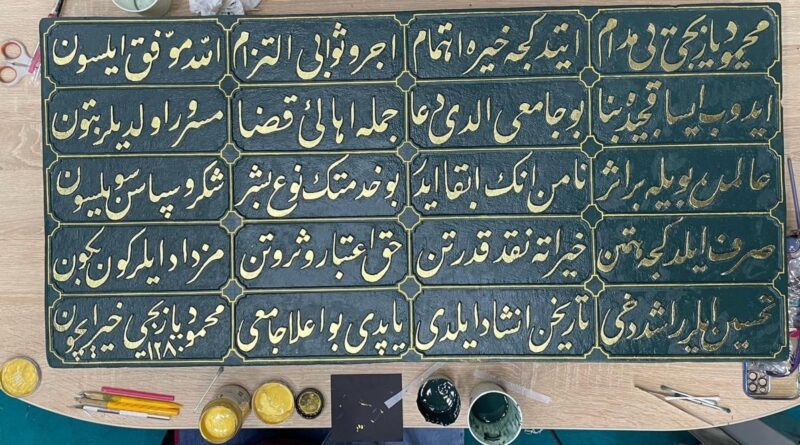 محمود یازیجی بی مدام ایتدکجه خیره اهتمام اجر و ثوابی التزام الله موفق ایلسون
ایدوب ایساقجیده بنا بو جامعی الدی دعا جمله اهالئ قضا مسرور اولدیلر بتون
عالمدن بویله بر اثر نامن انک ابقا ایدر بو خدمتک نوع بشر شکر و سپاسن سویلسون
صرف ایلدکجه همتن خیراته نقد قدرتن حق اعتبار و ثروتن مزداد ایلر کون بکون
تحسین ایلر راشد دخی تاریخن انشاد ایلدی یاپدی بو اعلا جامعی محمود یازیجی خیر ایچون
١٢٨٠